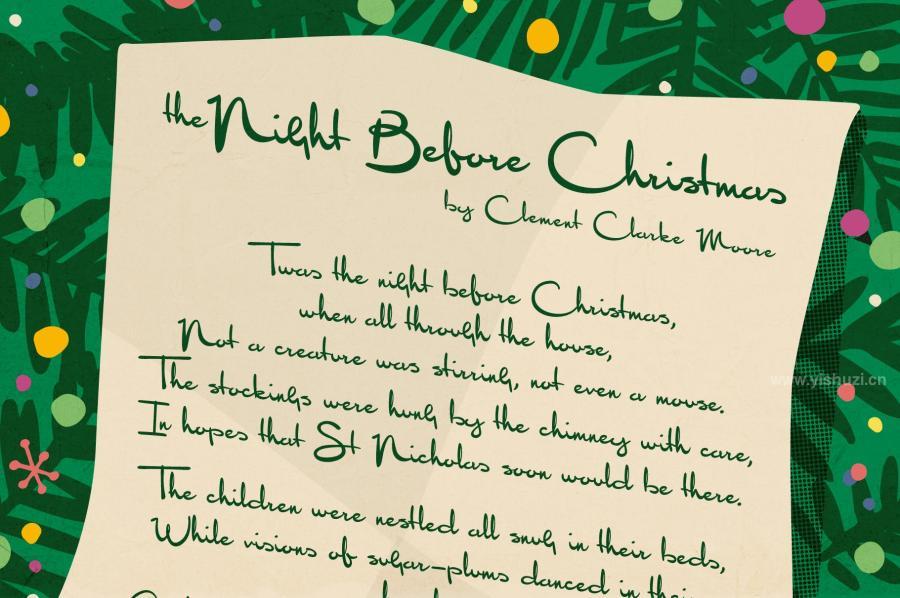 the Night Before Christmas
by Clement Clarke Moore
Twas the night before Christmas,
when all through the house,
Not a creature was stirring, not even a mouse.
The stockings were hung by the chimney with care,
In hopes that St Nicholas soon would be there.
The children were nestled all snug in their beds,
While visions of sugar-plums danced in their
www.yishuzi.cn